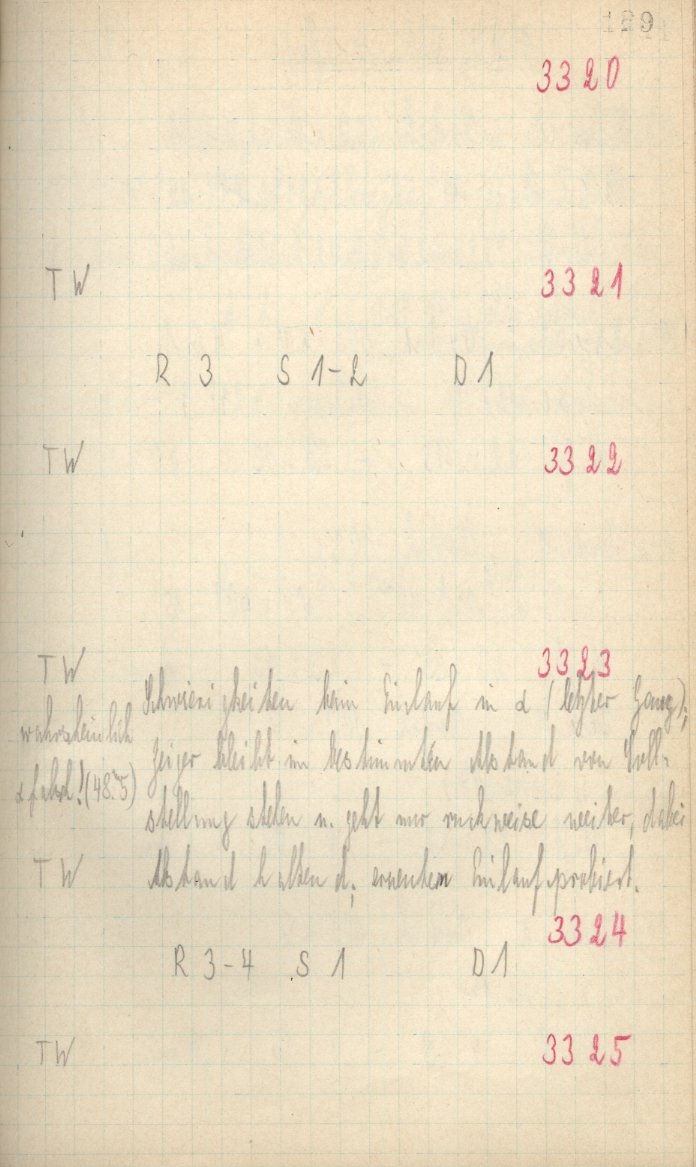 129
3320
TW 3321
R 3 S 1-2 D 1
TW 3322
TW 3323
Schwierigkeiten beim Einlauf in α (letzter Gang);
wahrscheinlich
Zeiger bleibt im bestimmten Abstand von Soll-
α falsch! (48.5)
stellung stehen u. geht nur ruckweise weiter, dabei
TW Abstand haltend; erneuten Einlauf probiert.
3324
R 3-4 S 1 D 1
TW 3325